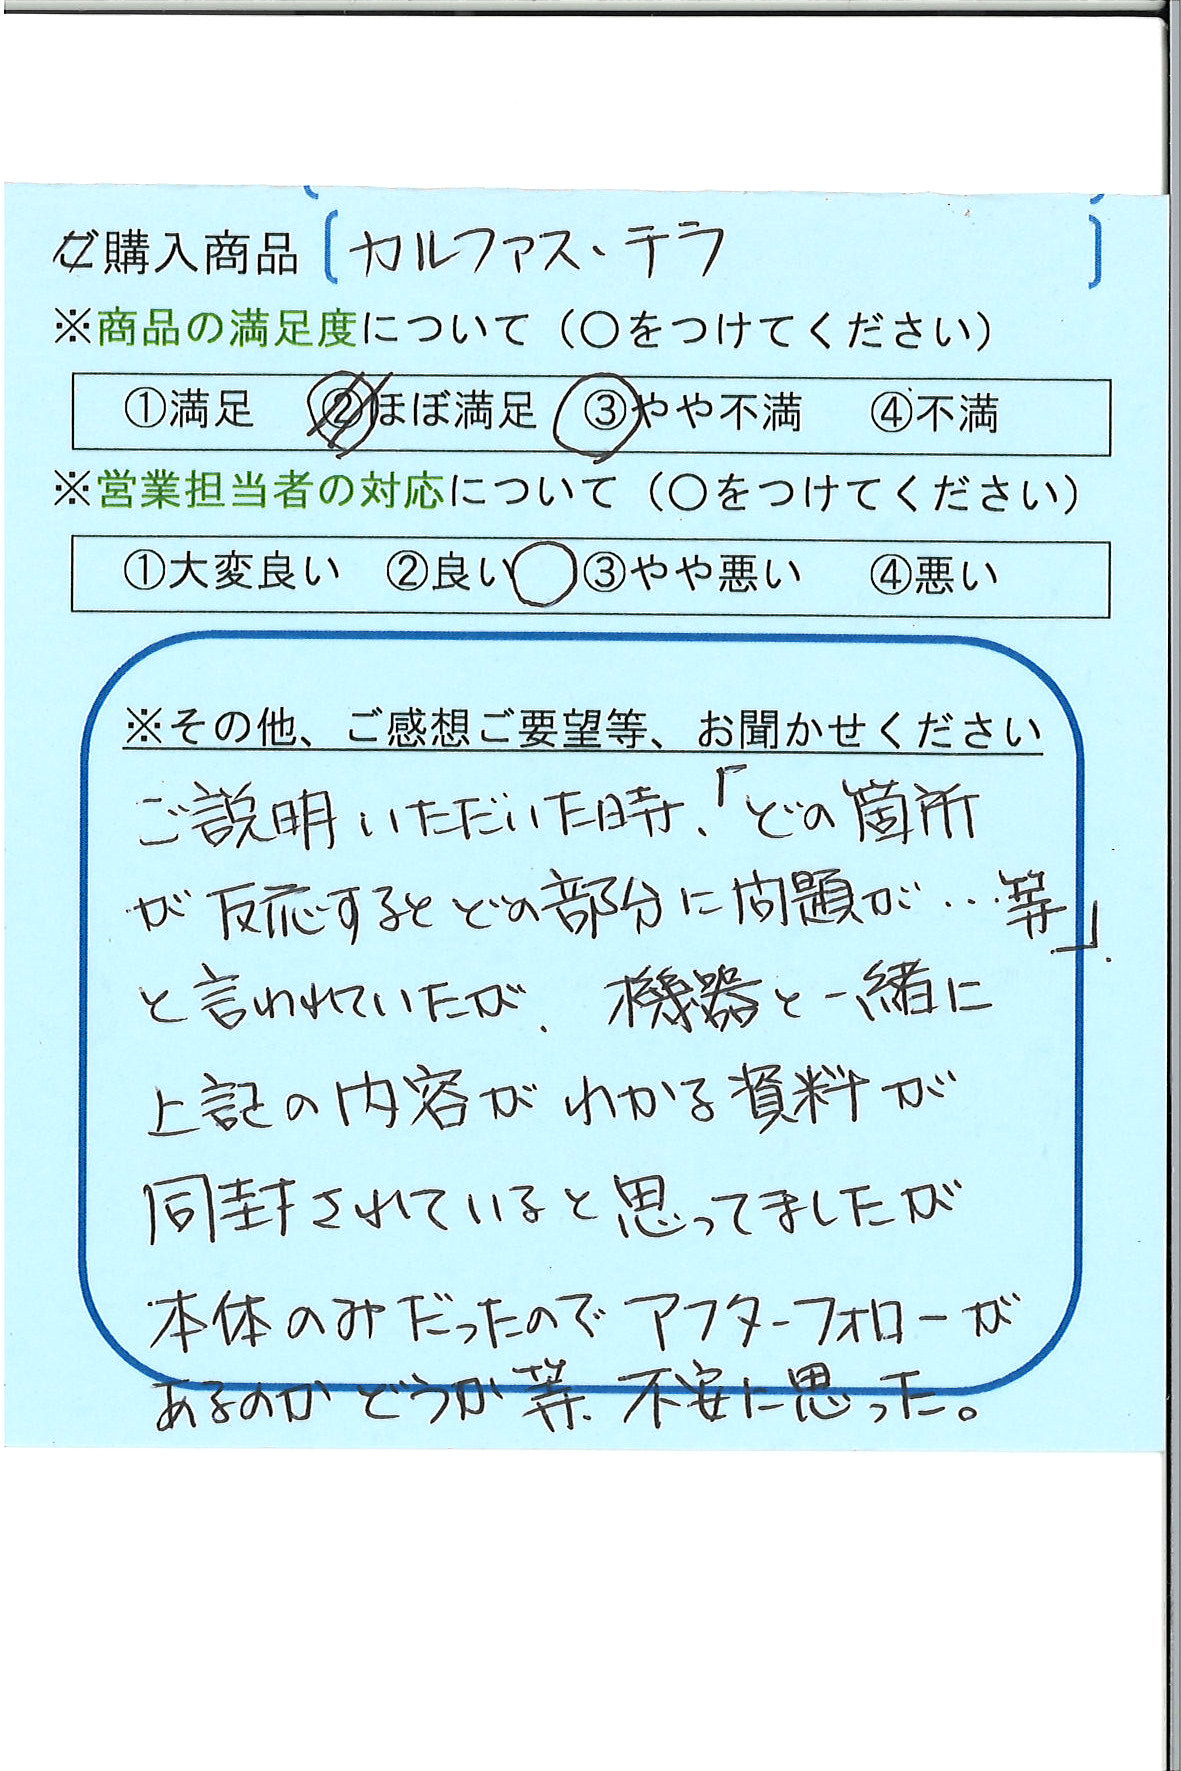 ご購入商品〔カルファス、テラ 〕
※商品の満足度について（○をつけてください）
①満足 ②ほぼ満足 ③やや不満 ④不満
※営業担当者の対応について（○をつけてください）
①大変良い ②良い ○ ③やや悪い ④悪い
※その他、ご感想ご要望等、お聞かせください
ご説明いただいた時、「どの箇所
が反応するとどの部分に問題が…等」
と言われていたが、機器と一緒に
上記の内容がわかる資料が
同封されていると思ってましたが
本体のみだったのでアフターフォローが
あるのかどうか等、不安に思った。